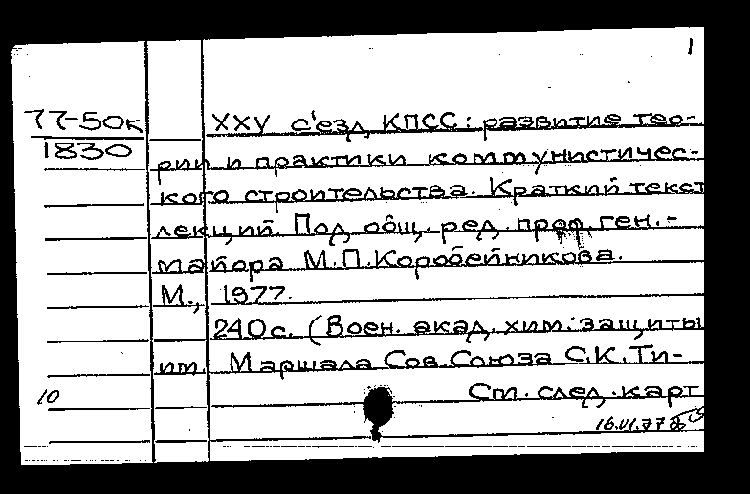 1
77-50к
1830
XXV с'езд КПСС: развитие тео-
рии и практики коммунистичес-
кого строительства. Краткий текст
лекций. Под общ. ред. проф. ген.-
майора М.П.Коробейникова.
М., 1977.
240с. (Воен. акад. хим. защиты
им. Маршала Сов.Союза С.К.Ти-
10
См. след. карт
16.VI.77